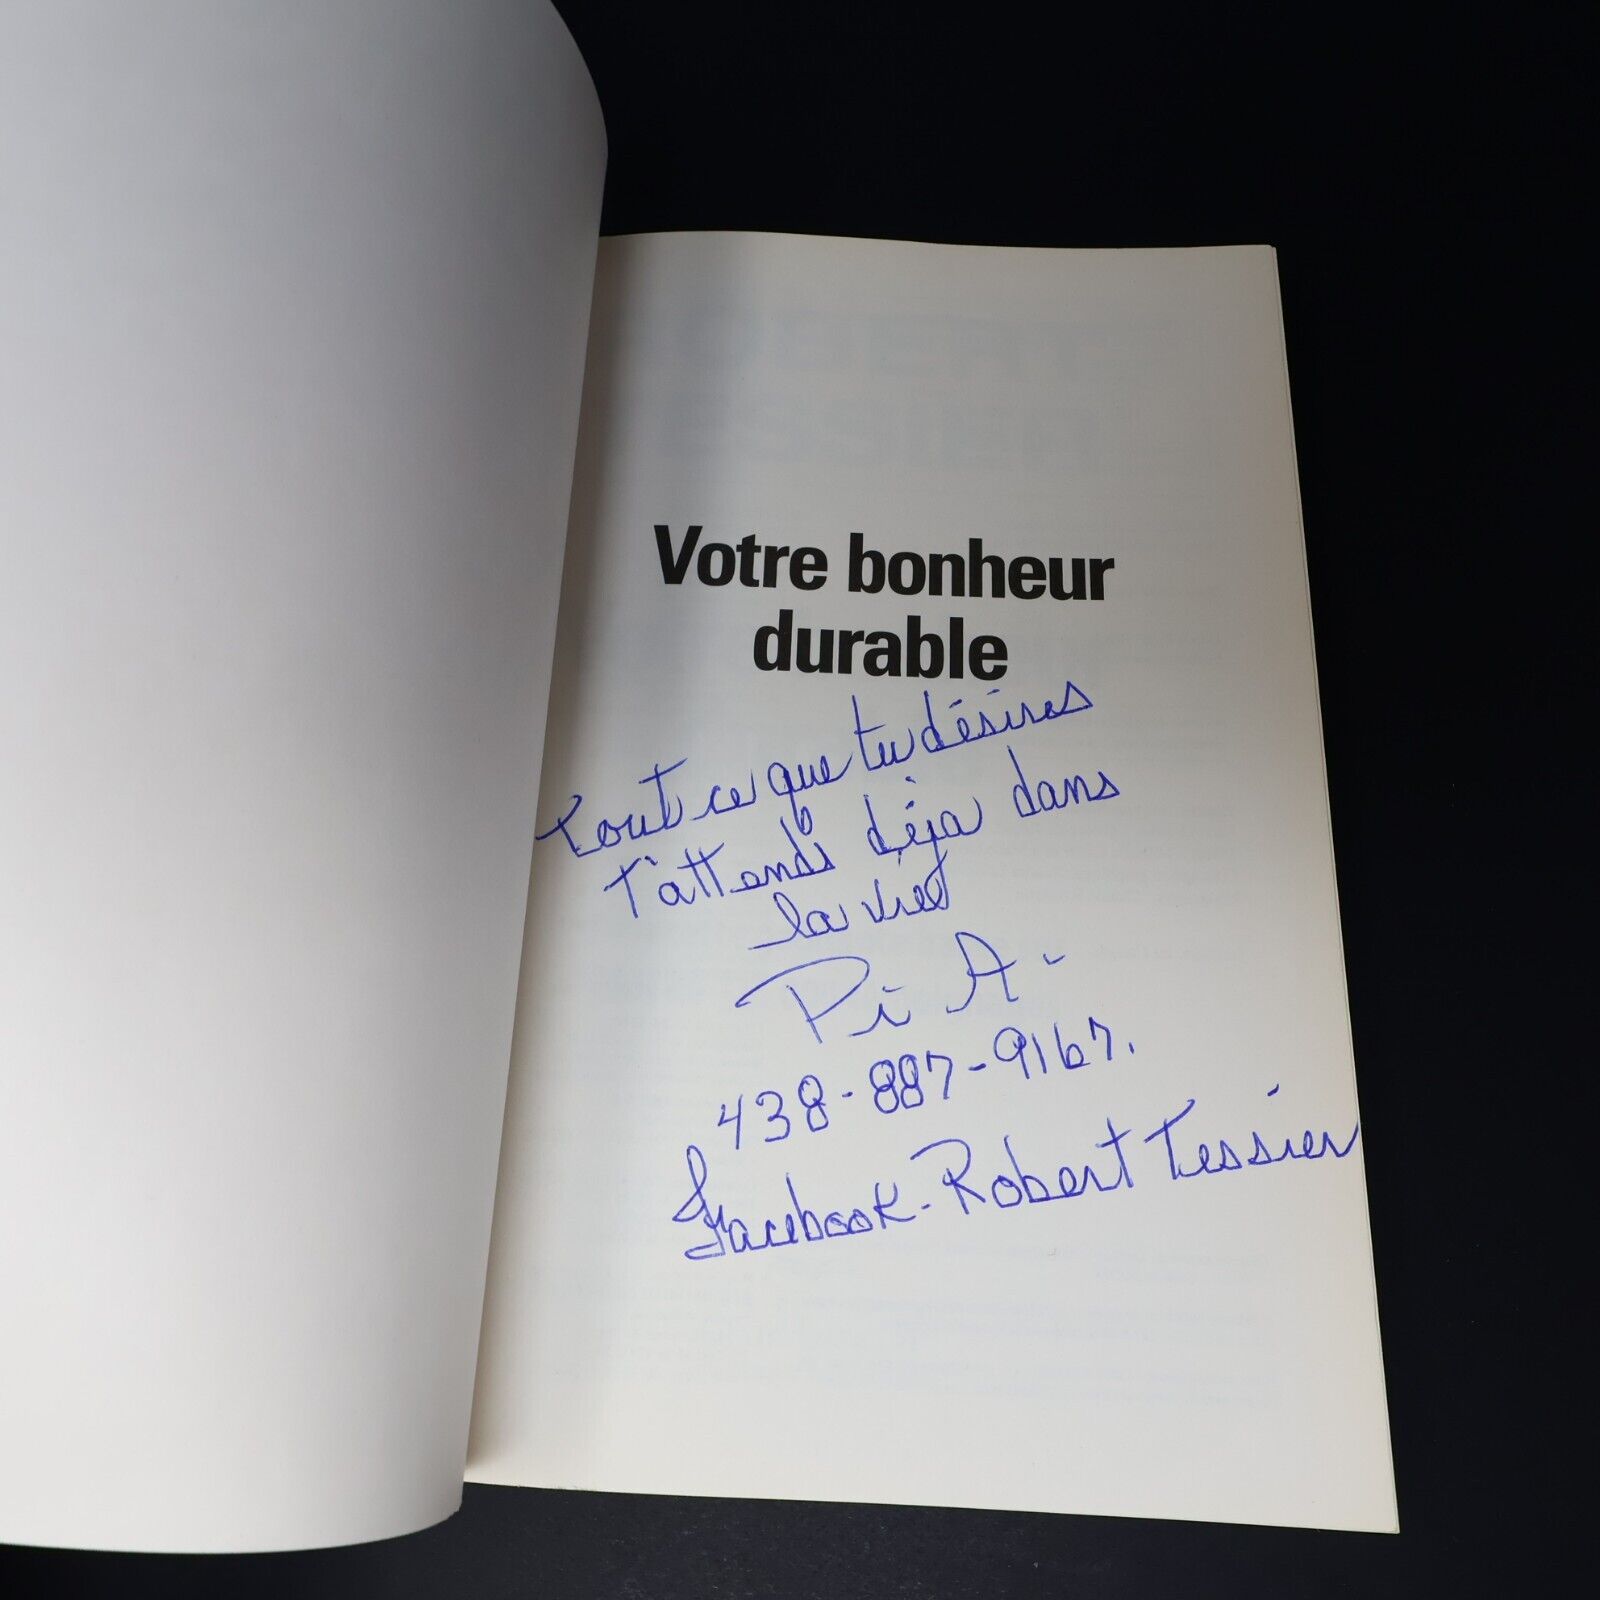 Votre bonheur
durable
Tout ce que tu désires
t'attends déja dans
la vie
Pi A-
438-887-9167.
Facebook-Robert Tessier